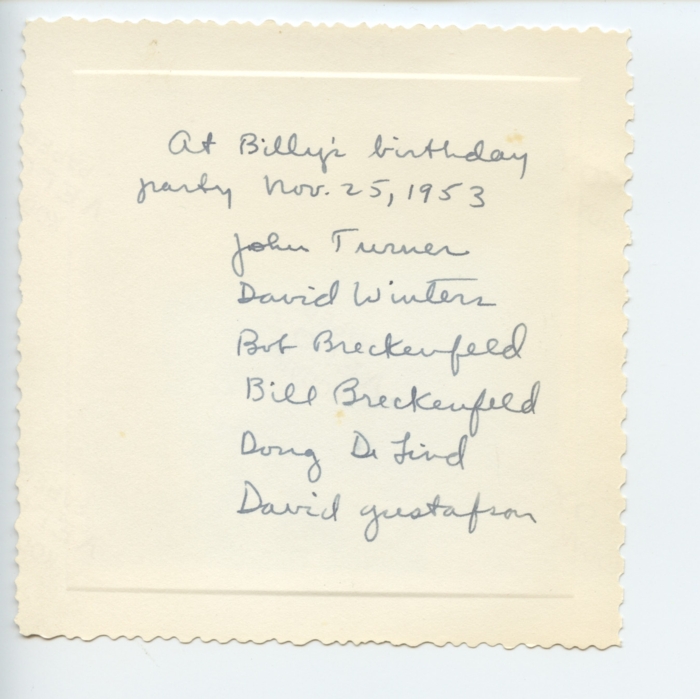 At Billy's birthday
party Nov. 25, 1953
John Turner
David Winters
Bob Breckenfeld
Bill Breckenfeld
Doug De Lind
David Gustafson